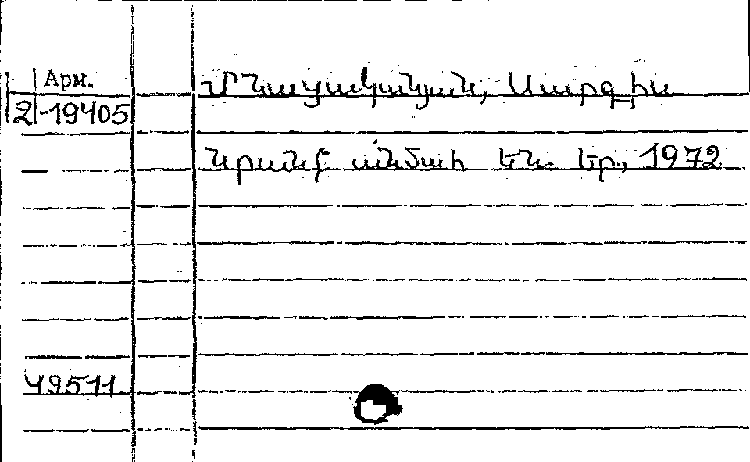 Арм.
2-19405
Մնացականյան, Սարգիս
Նրանք անմահ են. Եր., 1972
49511